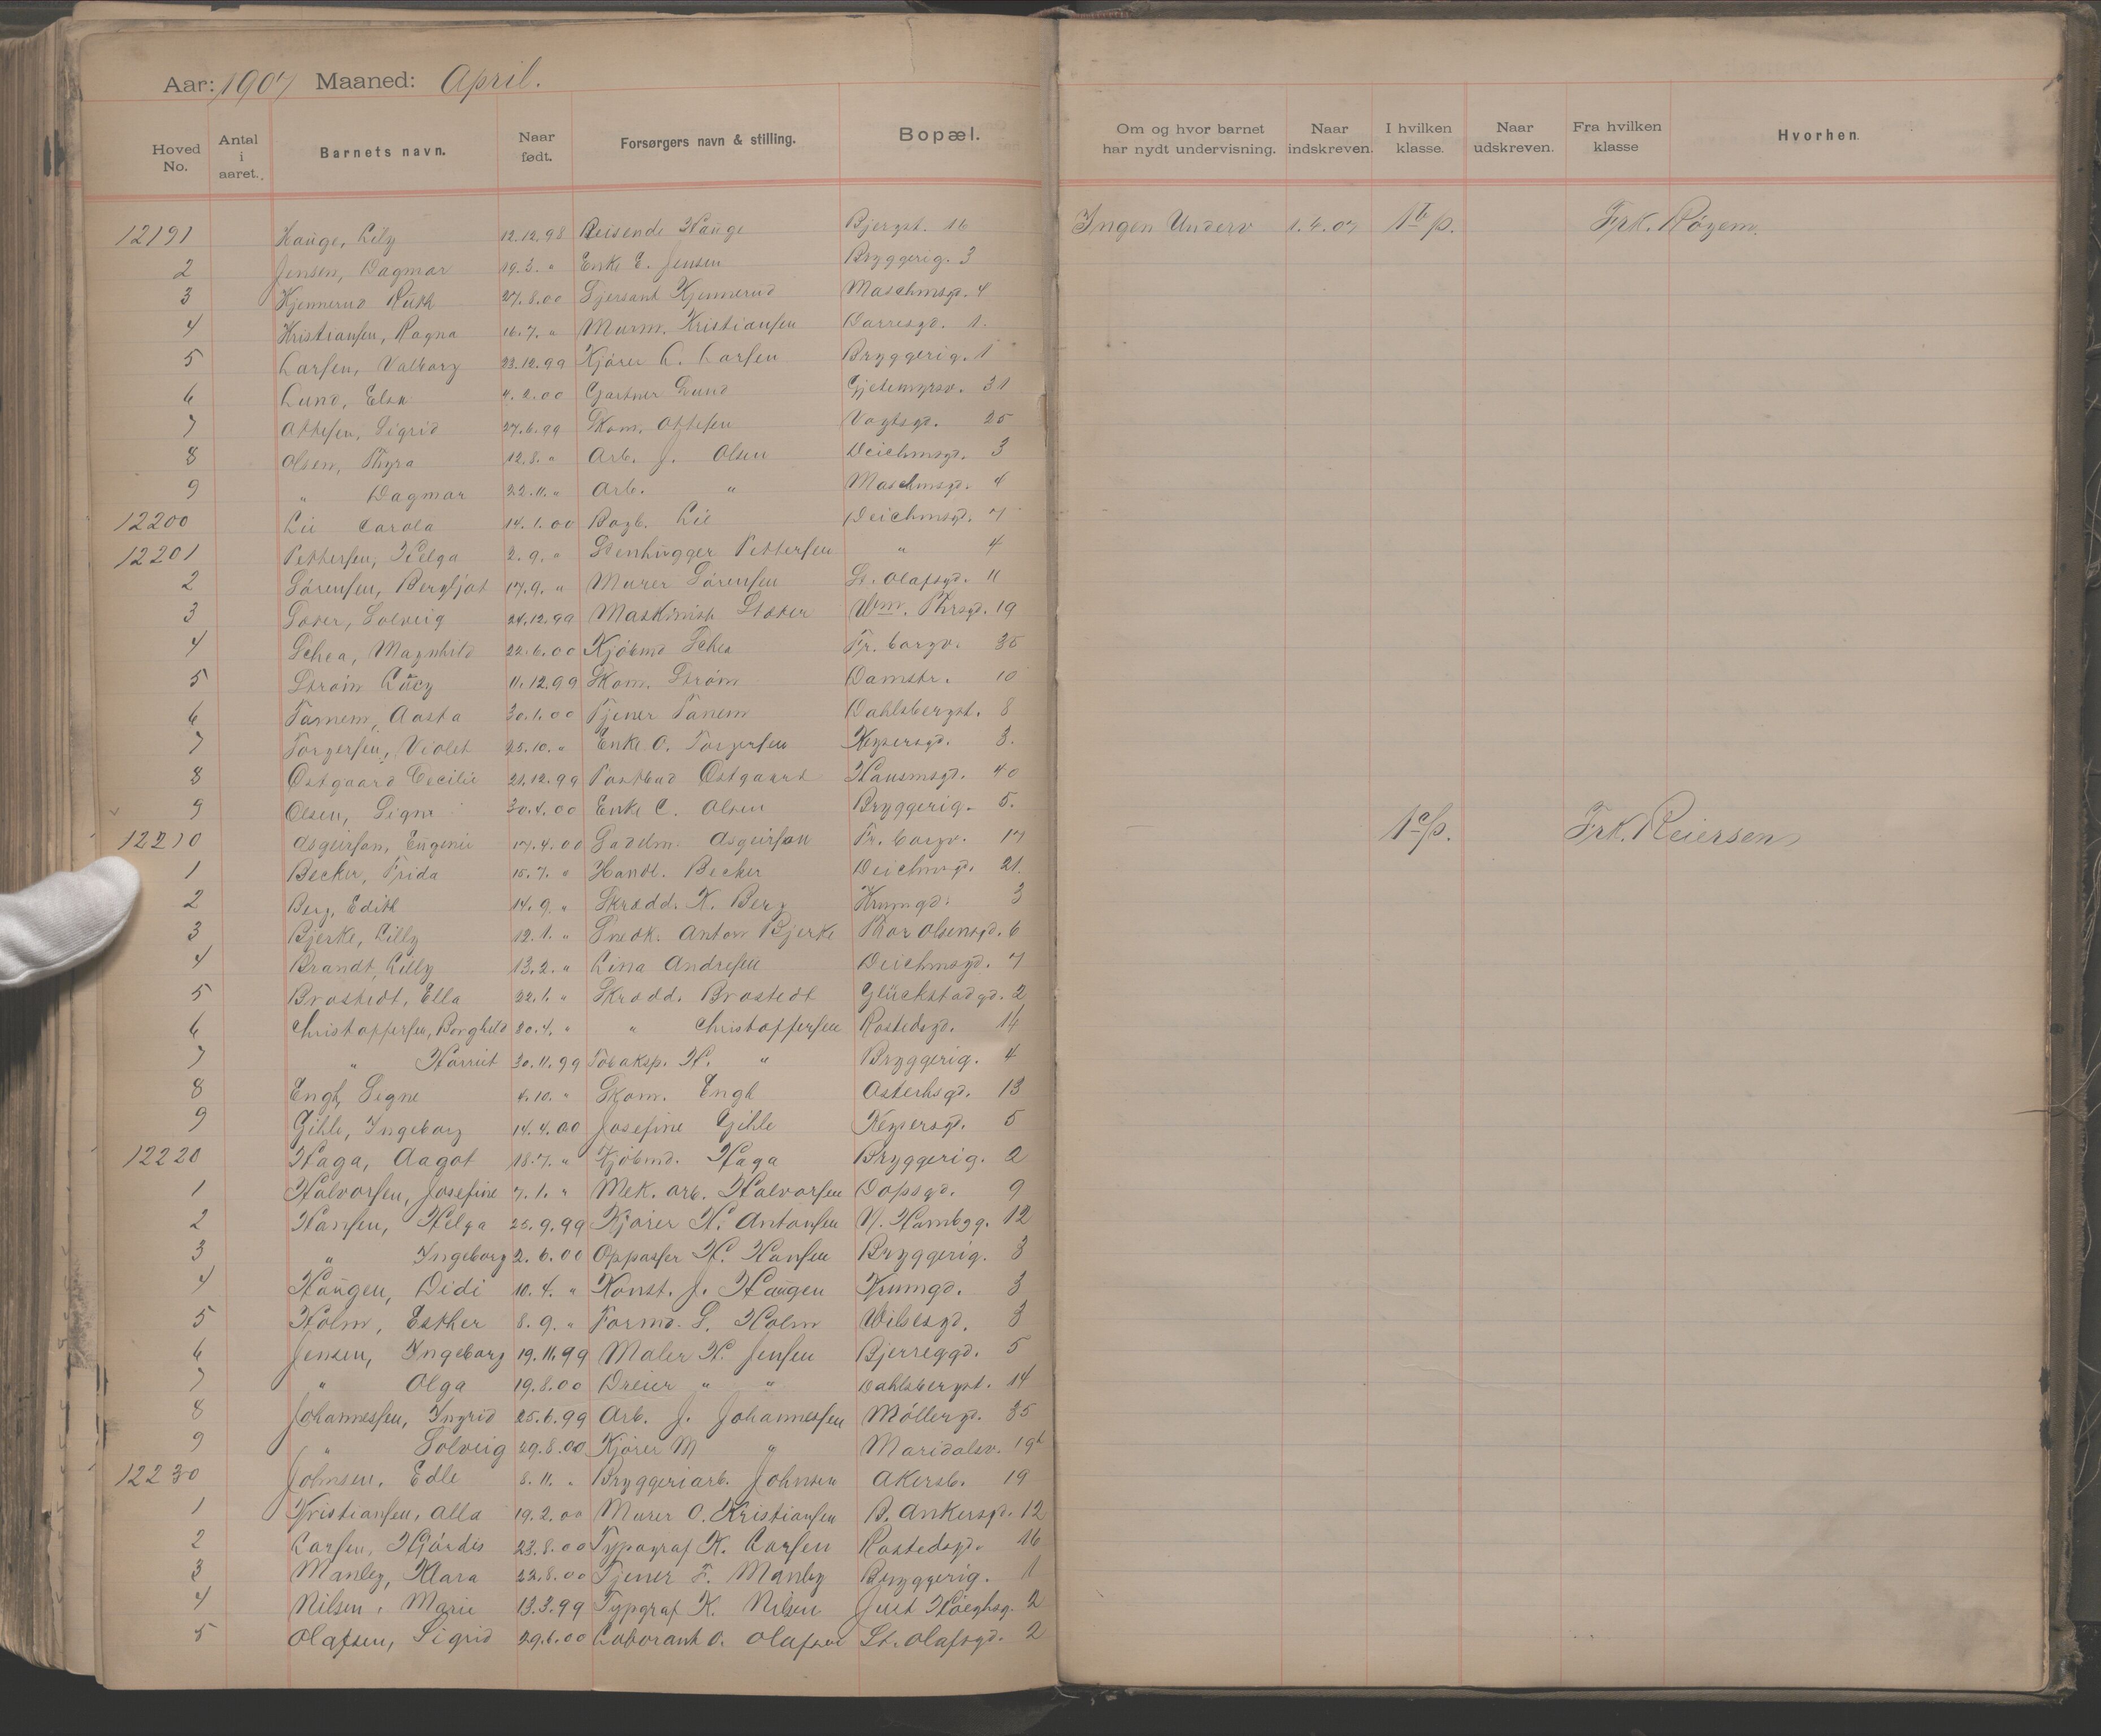 Aar: 1907 Maaned: April.
Hoved No. Antal i aaret. Barnets navn. Naar født. Forsørgers navn & stilling. Bopæl. Om og hvor barnet har nydt undervisning. Naar indskreven. I hvilken klasse. Naar udskreven. Fra hvilken klasse Hvorhen.
12191 Hauge, Lily 12.12.98 Reisende Hauge Bjergst. 16 Ingen Underv 1.4.07 1 b p. Frk. Röyem.
2 Jensen, Dagmar 19.3. " Enke E. Jensen Bryggerig. 3
3 Kjennerud Ruth 27.8.00 Sjersant Kjennerud Maschmsgd. 4
4 Kristiansen, Ragna 16.7. " Murm. Kristiansen Darresgd. 1.
5 Larsen, Valborg 23.12.99 Kjörer L. Larsen Bryggerig. 1
6 Lund, Elsa 4.2.00 Gartner Lund Gjetemyrsv. 31
7 Ottesen, Sigrid 27.6.99 Skom. Ottesen Vogtsgd. 25
8 Olsen, Thyra 12.8. " Arb. J. Olsen Deichmsgd. 3
9 " Dagmar 22.11. " Arb. " Maschmsgd. 4
12200 Lie Carola 14.1.00 Bogb. Lie Deichmsgd. 7
12201 Pettersen, Helga 2.9. " Stenhugger Pettersen " 4
2 Sörensen, Bergljot 17.9. " Murer Sörensen St. Olafsgd. 11
3 Solveig 24.12.99 Maskinist Vem. Thrsgd. 19
4 Schea, Magnhild 22.6.00 Kjöbmd Schea Fr. borgv. 35
5 Ström Lucy 11.12.99 Skom. Ström Damstr. 10
6 Tanem, Aasta 30.1.00 Tjener Tanem Dahlsbergst. 8
7 Torgersen, Violet 25.10. " Enke O. Torgersen Keysersgd. 3.
8 Östgaard Cecilie 21.12.99 Postbud Östgaard Hausmsgd. 40
9 Olsen, Signe 30.4.00 Enke C. Olsen Bryggerig. 5.
12210 Asgeirson, Eugenie 17.4.00 Sadelm. Asgeirson Fr. borgv. 17 1 c p. Frk. Reiersen
1 Becker, Frida 15.7. " Handl. Becker Deichmgd. 21.
2 Berg, Edith 14.9. " Skrædd. K. Berg Krumgd. 3
3 Bjerke, Lilly 12.1. " Snedk. Anton Bjerke Thor Olsensgd. 6
4 Brandt, Lilly 13.2. " Lina Andresen Deichmsgd. 7
5 Brostedt, Ella 22.1. " Skrædd. Brostedt Glückstadgd. 2
6 Christoffersen, Borghild 30.4. " " Christoffersen Rostedsgd. 14
7 " Harriet 30.11.99 Tobaksp. H. " Bryggerig. 4
8 Engh, Signe 4.10. " Skom. Engh Osterhsgd. 13
9 Gihle, Ingeborg 14.4.00 Josefine Gihle Keysersgd. 5
12220 Haga, Aagot 18.7. " Kjöbmd. Haga Bryggerig. 2
1 Halvorsen, Josefine 7.1. " Mek. arb. Halvorsen Dopsgd. 9
2 Hansen, Helga 25.9.99 Kjörer H. Antonsen N. Hambgg. 12
3 " Ingeborg 2.6.00 Oppasser H. Hansen Bryggerig. 3
4 Haugen, Didi 10.4. " Konst. J. Haugen Krumgd. 3
5 Holm, Esther 8.9. " Formd. S. Holm Wilsesgd. 3
6 Jensen, Ingeborg 19.11.99 Maler H. Jensen Bjerreggd. 5
7 " Olga 19.8.00 Dreier " " Dahlsbergst. 14
8 Johannessen, Ingrid 25.6.99 Arb. J. Johannessen Möllergd. 35
9 " Solveig 29.8.00 Kjörer M " Maridalsv. 19b
12230 Johnsen, Edle 8.11. " Bryggeriarb. Johnsen Akersb. 19
1 Kristiansen, Alla 19.2.00 Murer O. Kristiansen B. Ankersgd. 12
2 Larsen, Hjördis 23.8.00 Typograf K. Larsen Rostedsgd. 16
3 Manley, Klara 22.8.00 Tjener F. Manley Bryggerig. 1
4 Nilsen, Marie 13.3.99 Typgraf K. Nilsen Just Höeghsg. 2
5 Olafsen, Sigrid 29.6.00 Laborant O. Olafsen St. Olafsgd. 2